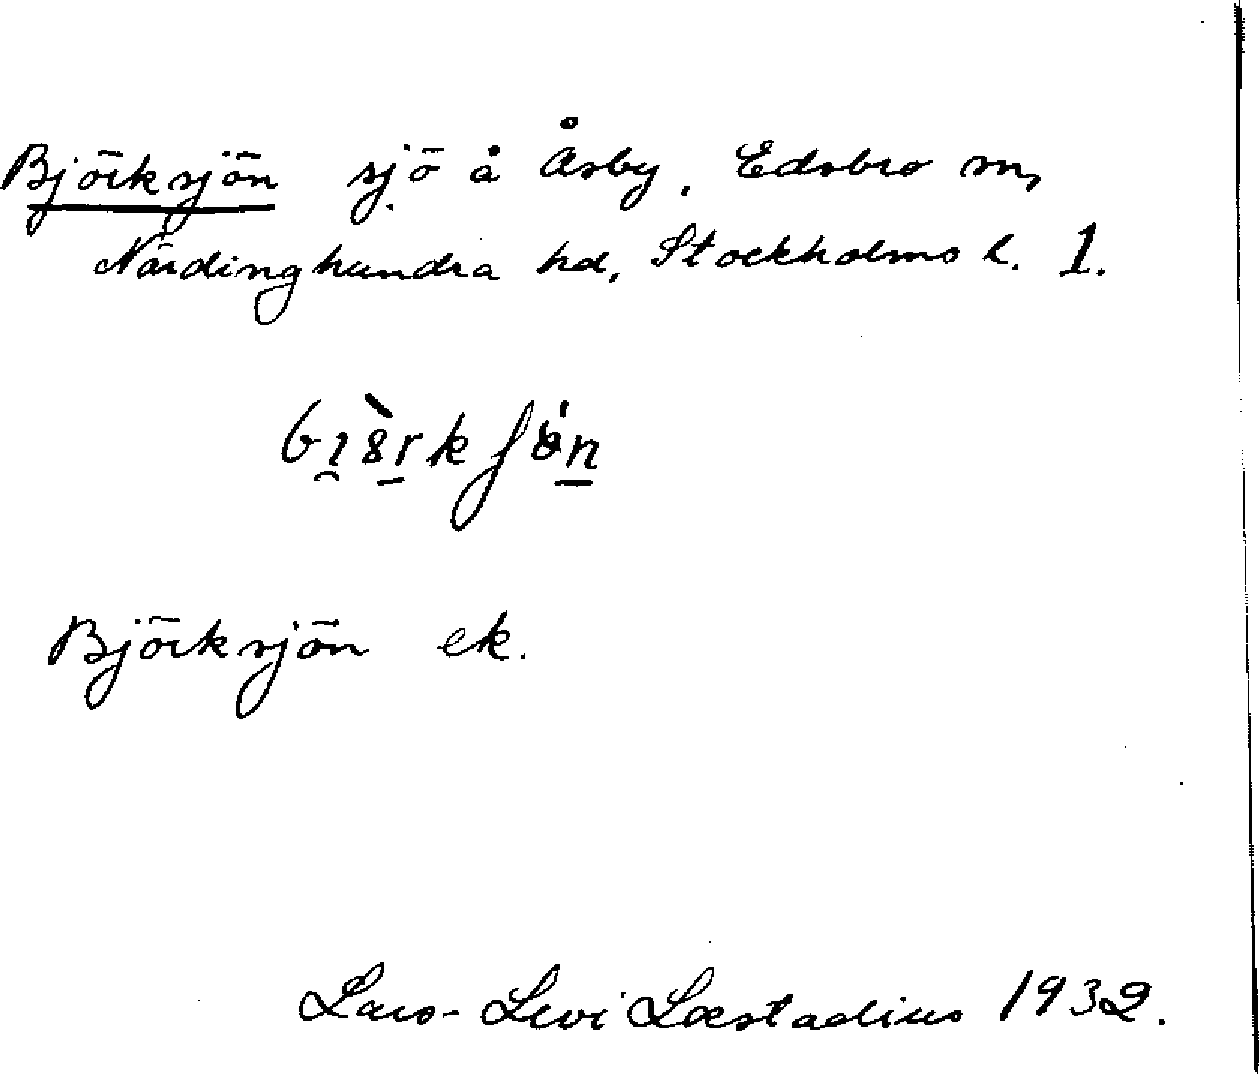 Björksjön sjö å Åsby, Edsbro sn,
Närdinghundra hd, Stockholms l. 1.
Björksjön ek.
Lars-Levi Læstadius 1932.